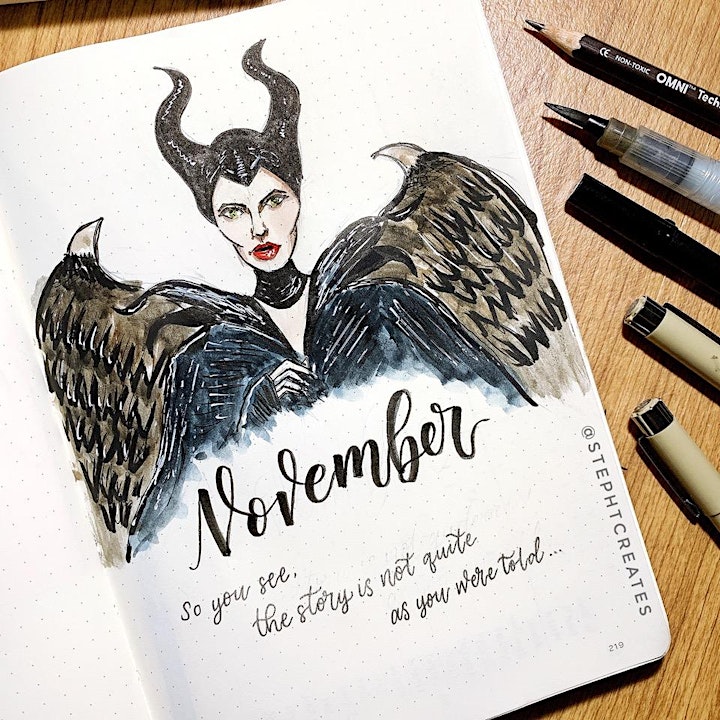 CE NON-TOXIC OMNI™ Tech
November
So you see,
the story is not quite
as you were told...
@STEPHTCREATES
219